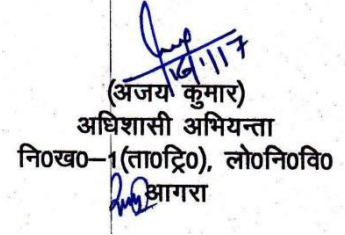 16/1/17
(अजय कुमार)
अधिशासी अभियन्ता
नि०ख०–1(ता०ट्रि०), लो०नि०वि०
आगरा